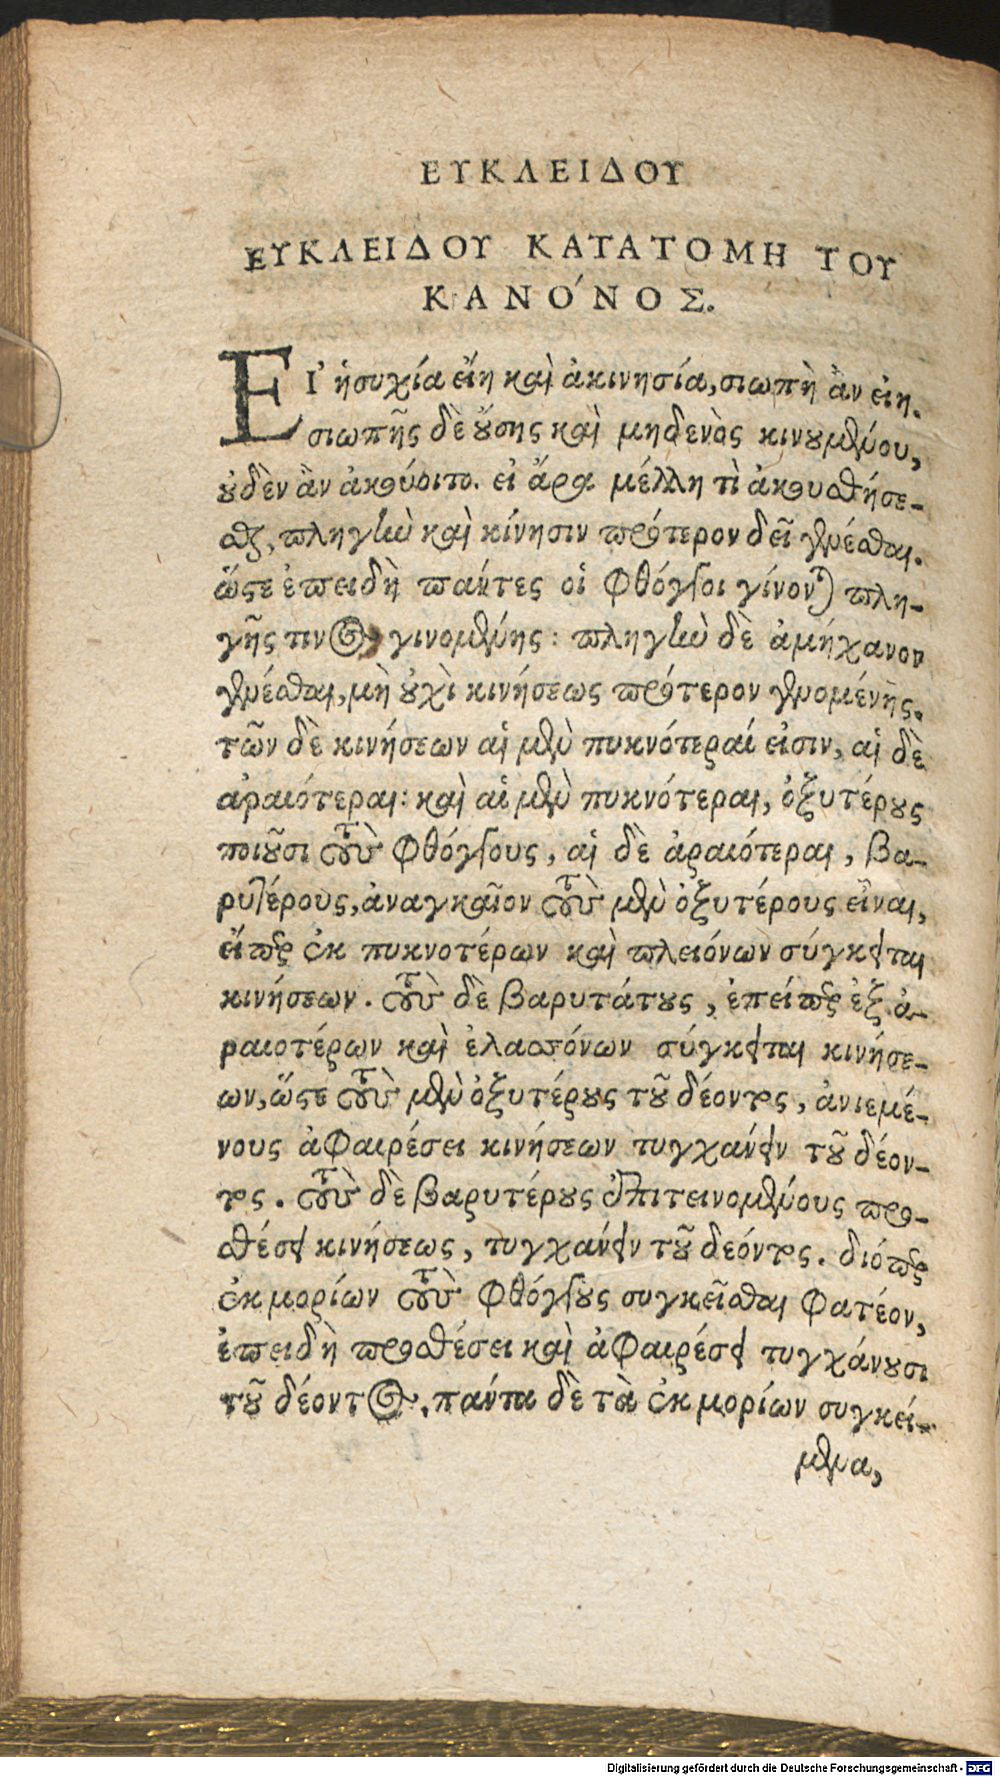 ΕΥΚΛΕΙΔΟΥ
ΕΥΚΛΕΙΔΟΥ ΚΑΤΑΤΟΜΗ ΤΟΥ
ΚΑΝΌΝΟΣ.
ΕΙ᾽ ἡσυχία εἴη καὶ ἀκινησία, σιωπὴ ἂν εἴη.
σιωπῆς δὲ οὔσης καὶ μηδενὸς κινουμένου,
οὐδὲν ἂν ἀκούοιτο. εἰ ἄρα μέλλη τὶ ἀκουσθήσε-
σθαι, πληγὴν καὶ κίνησιν πρότερον δεῖ γενέσθαι.
ὥστε ἐπειδὴ πάντες οἱ φθόγγοι γίνονται πλη-
γῆς τινος γινομένης: πληγὴν δὲ ἀμήχανον
γενέσθαι, μὴ οὐχὶ κινήσεως πρότερον γενομένης.
τῶν δὲ κινήσεων αἱ μὲν πυκνότεραί εἰσιν, αἱ δὲ
ἀραιότεραι: καὶ αἱ μὲν πυκνότεραι, ὀξυτέρους
ποιοῦσι τοὺς φθόγγους, αἱ δὲ ἀραιότεραι, βα-
ρυτέρους, ἀναγκαῖον τοὺς μὲν ὀξυτέρους εἶναι,
εἴπερ ἐκ πυκνοτέρων καὶ πλειόνων σύγκειται
κινήσεων. τοὺς δὲ βαρυτάτους, ἐπείπερ ἐξ ἀ-
ραιοτέρων καὶ ἐλασσόνων σύγκειται κινήσε-
ων, ὥστε τοὺς μὲν ὀξυτέρους τοῦ δέοντος, ἀνιεμέ-
νους ἀφαιρέσει κινήσεων τυγχάνειν τοῦ δέον-
τος. τοὺς δὲ βαρυτέρους ἐπιτεινομένους προ-
σθέσει κινήσεως, τυγχάνειν τοῦ δεόντος. διόπερ
ἐκ μορίων τοὺς φθόγγους συγκεῖσθαι φατέον,
ἐπειδὴ προσθέσει καὶ ἀφαιρέσει τυγχάνουσι
τοῦ δέοντος. πάντα δὲ τὰ ἐκ μορίων συγκεί-
μενα,
Digitalisierung gefördert durch die Deutsche Forschungsgemeinschaft - DFG